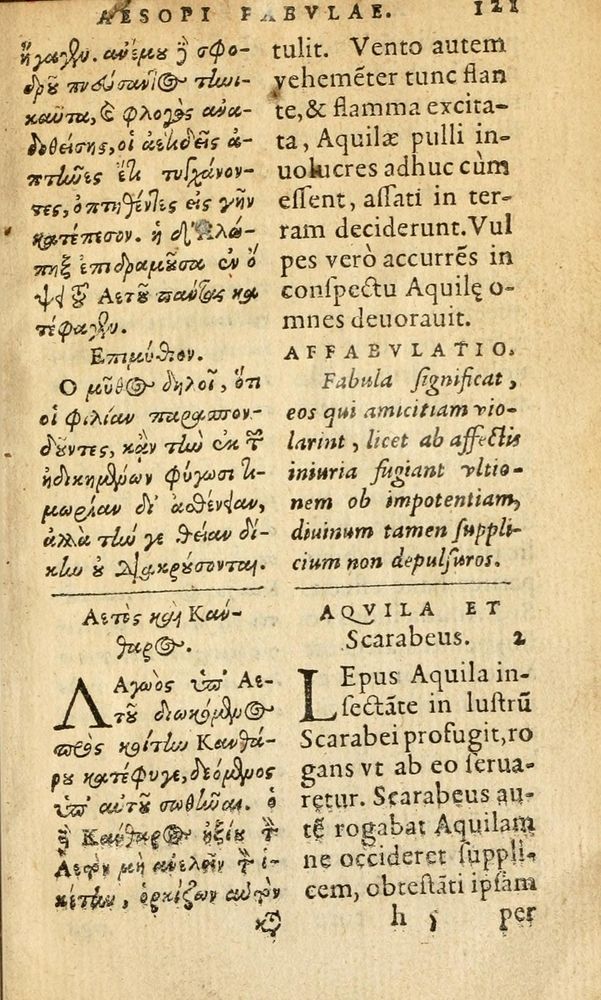 AESOPI FABVLAE. 121
ἤγαγεν. ἀνέμου δὲ σφο-
δροῦ πνεύσαντος τηνι-
καῦτα, καὶ φλογὸς ἀνα-
δοθείσης, οἱ ἀετιδεῖς ἀ-
πτῆνες ἔτι τυγχάνον-
τες, ὀπτηθέντες εἰς γῆν
κατέπεσον. ἡ δ' Ἀλώ-
πηξ ἐπιδραμοῦσα ἐν ὄ-
ψει τοῦ Ἀετοῦ πάντας κα-
τέφαγεν.
Ἐπιμύθιον.
Ὁ μῦθος δηλοῖ, ὅτι
οἱ φιλίαν παρασπον-
δοῦντες, κἂν τὴν ἐκ τῶν
ἠδικημένων φύγωσι τι-
μωρίαν δι' ἀσθένειαν,
ἀλλὰ τήν γε θείαν δί-
κην οὐ διακρούσονται.
Ἀετὸς καὶ Κάν-
θαρος.
ΛΑγωὸς ὑπ' Ἀε-
τοῦ διωκόμενος
πρὸς κοίτην Κανθά-
ρου κατέφυγε, δεόμενος
ὑπ' αὐτοῦ σωθῆναι. ὁ
δὲ Κάνθαρος ἠξίου τὸν
Ἀετὸν μὴ ἀνελεῖν τὸν ἱ-
κέτην, ὁρκίζων αὐτὸν
κατὰ
tulit. Vento autem
vehemēter tunc flan
te, & flamma excita-
ta, Aquilæ pulli in-
uolucres adhuc cùm
eſſent, aſſati in ter-
ram deciderunt. Vul
pes verò accurrēs in
conſpectu Aquilę o-
mnes deuorauit.
AFFABVLATIO.
Fabula ſignificat,
eos qui amicitiam vio-
larint, licet ab affectis
iniuria fugiant vltio-
nem ob impotentiam,
diuinum tamen ſuppli-
cium non depulſuros.
AQVILA ET
Scarabeus. 2
LEpus Aquila in-
ſectāte in luſtrū
Scarabei profugit, ro
gans vt ab eo ſerua-
retur. Scarabeus au-
tē rogabat Aquilam
ne occideret ſuppli-
cem, obteſtāti ipſam
h 5 per